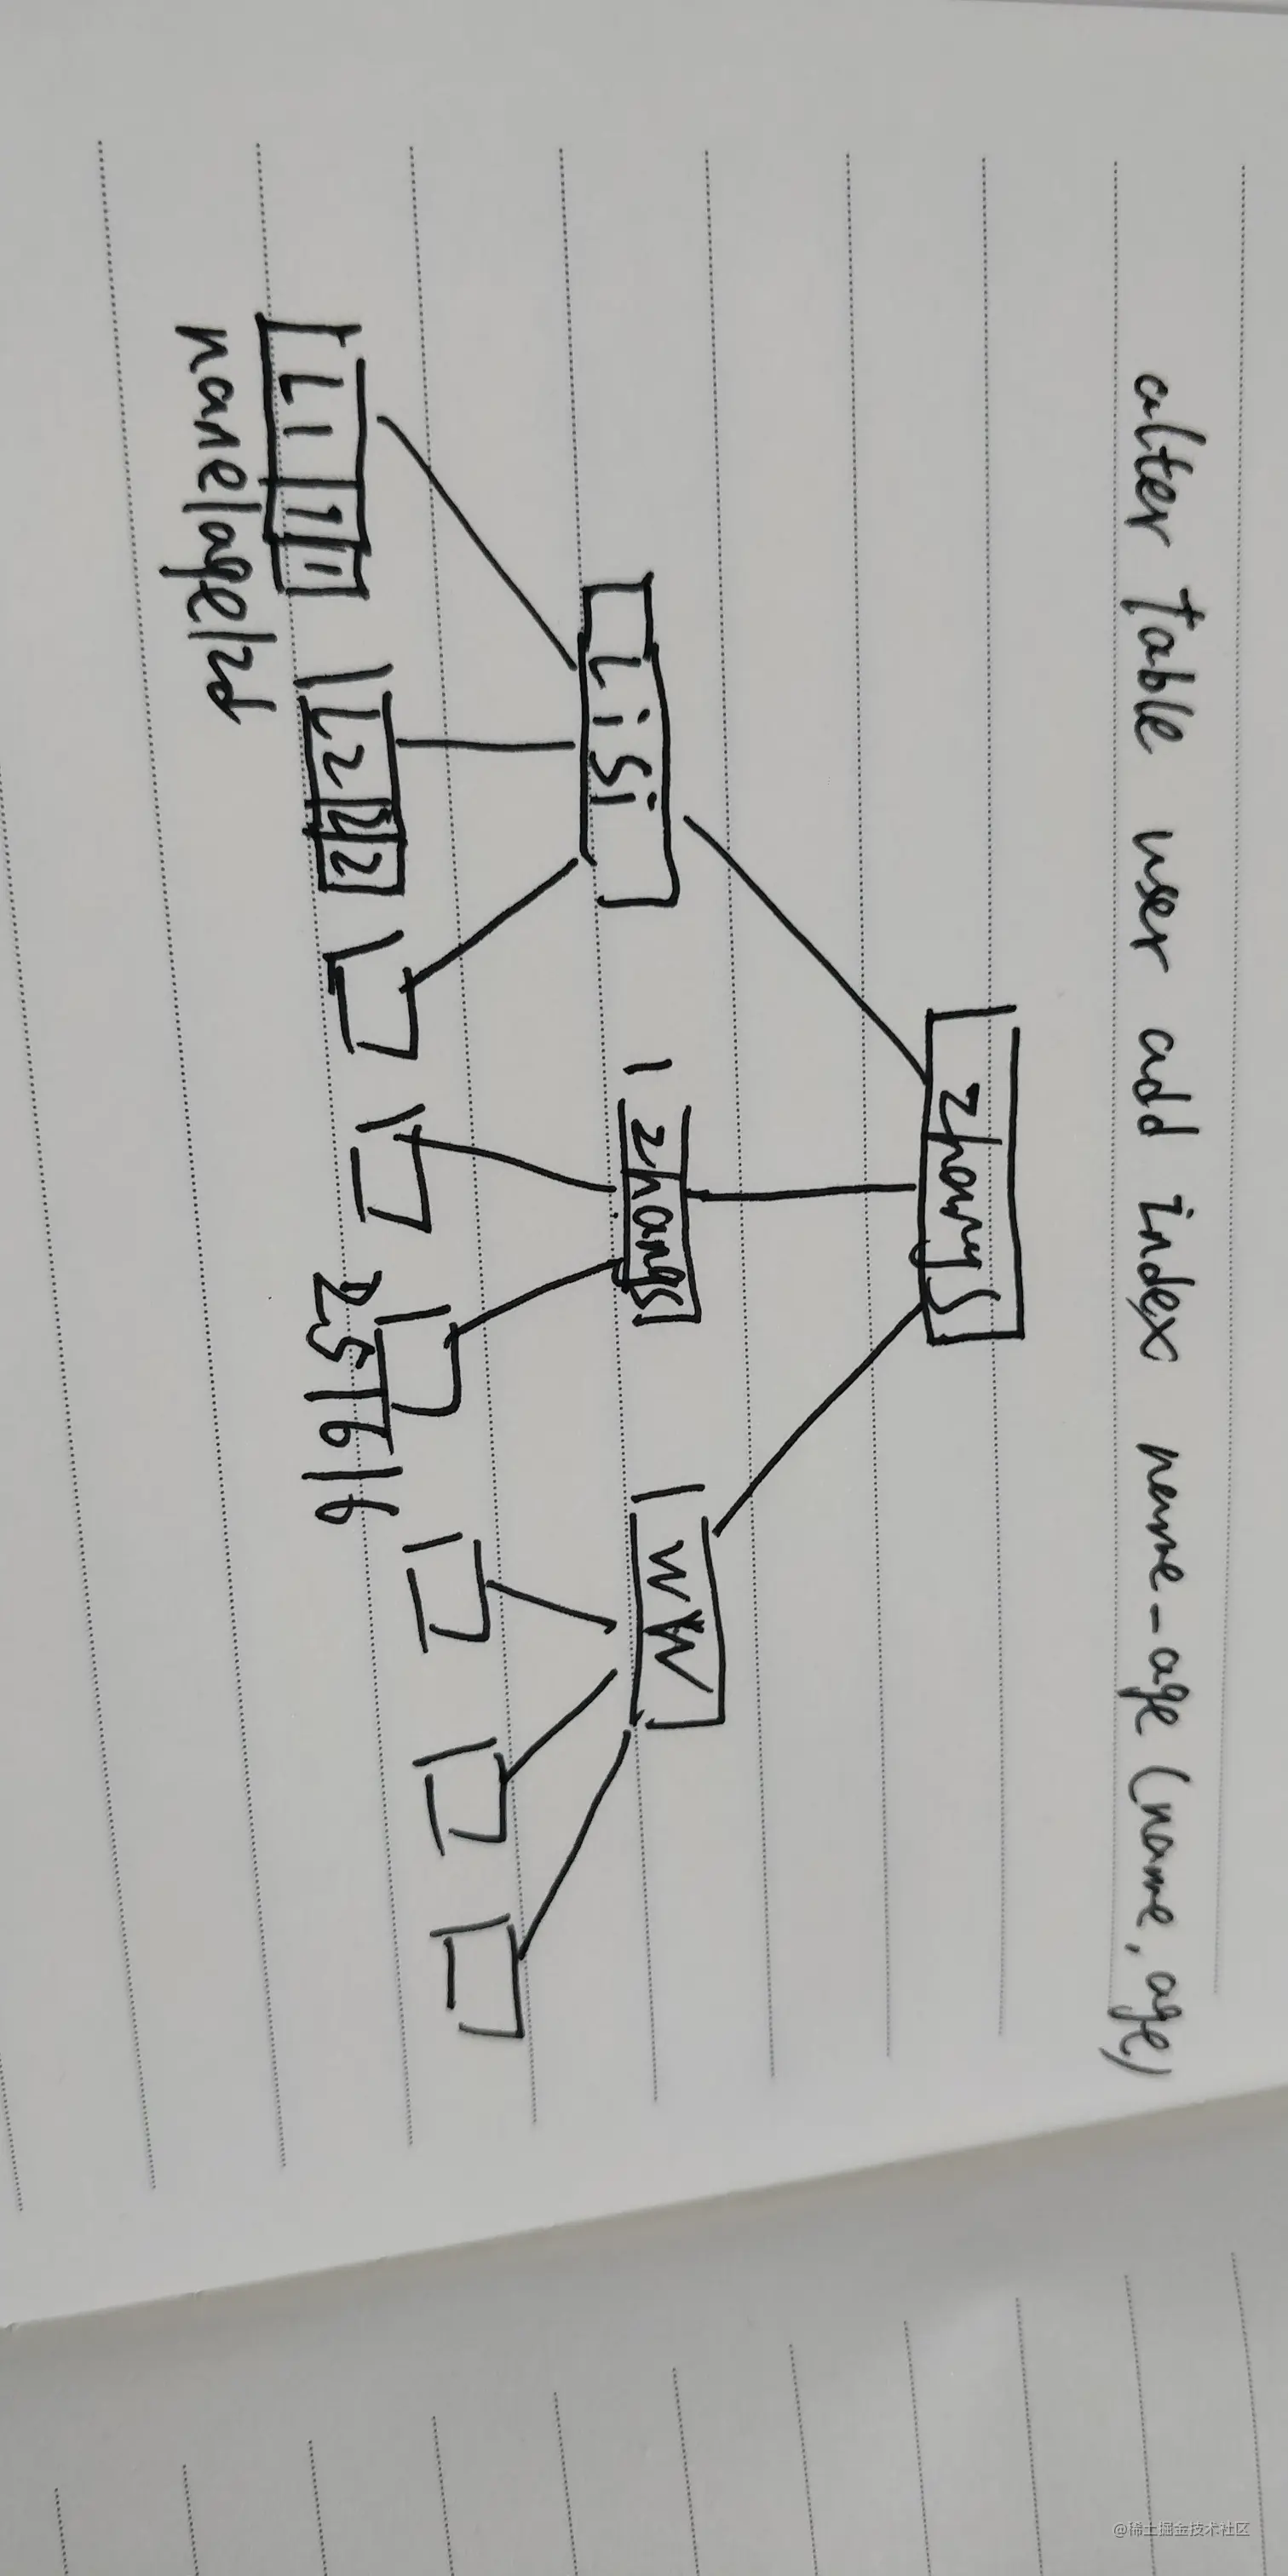 alter table user add index name-age (name, age)
zhangS
LiSi
zhangS
WW
L1 1 1
L2 2
ZS 6 6
name/age/id
@稀土掘金技术社区